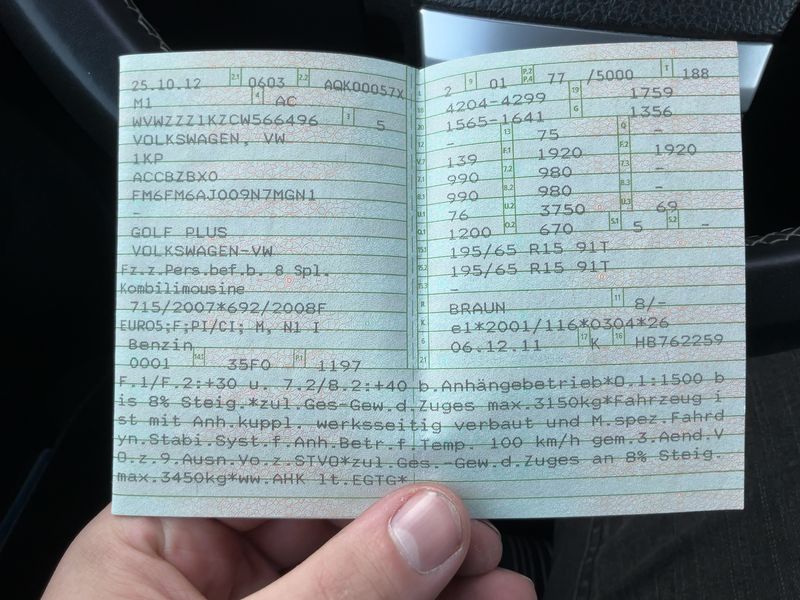 25.10.12 2.1 0603 2.2 AQK00057X
M1 4 AC
WVWZZZ1KZCW566496 3 5
VOLKSWAGEN, VW
1KP
ACCBZBX0
FM6FM6AJ009N7MGN1
-
GOLF PLUS
VOLKSWAGEN-VW
Fz.z.Pers.bef.b. 8 Spl.
Kombilimousine
715/2007*692/2008F
EURO5;F;PI/CI; M, N1 I
Benzin
0001 14.1 35F0 P.1 1197
2 9 01 P.2 P.4 77 /5000 T 188
4204-4299 19 1759
1565-1641 G 1356
- 13 75 Q -
139 F.1 1920 F.2 1920
990 7.2 980 7.3 -
990 8.2 980 8.3 -
76 U.2 3750 U.3 69
1200 O.2 670 S.1 5 S.2 -
195/65 R15 91T
195/65 R15 91T
-
R BRAUN 11 8/-
K e1*2001/116*0304*26
6 06.12.11 17 K 16 HB762259
21
F.1/F.2:+30 u. 7.2/8.2:+40 b.Anhängebetrieb*O.1:1500 b
is 8% Steig.*zul.Ges-Gew.d.Zuges max.3150kg*Fahrzeug i
st mit Anh.kuppl. werksseitig verbaut und M.spez.Fahrd
yn.Stabi.Syst.f.Anh.Betr.f.Temp. 100 km/h gem.3.Aend.V
O.z.9.Ausn.Vo.z.STVO*zul.Ges.-Gew.d.Zuges an 8% Steig.
max.3450kg*ww.AHK lt.EGTG*